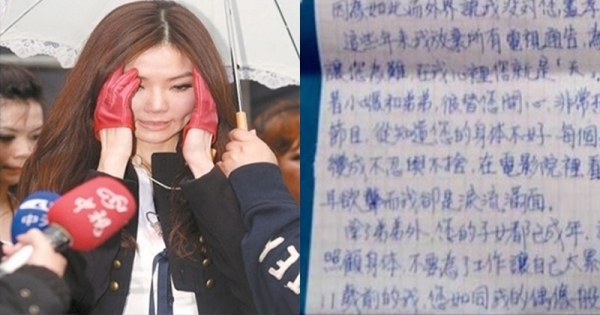 中視
因為如此而外界讓我沒對您
這些年來我放棄所有電視通告，為
讓您為難，在我心裡您就是「天
小媽和弟弟，很 您開心，非常
節目，從知道您的身体不好，每個
變成不忍與不捨，在電影院裡看
歡聲而我卻是淚流滿面。
除了弟弟外，您的子女都已成年，
照顧身体，不要為了工作讓自己太累
11歲前的我，您如同我的偶像一般